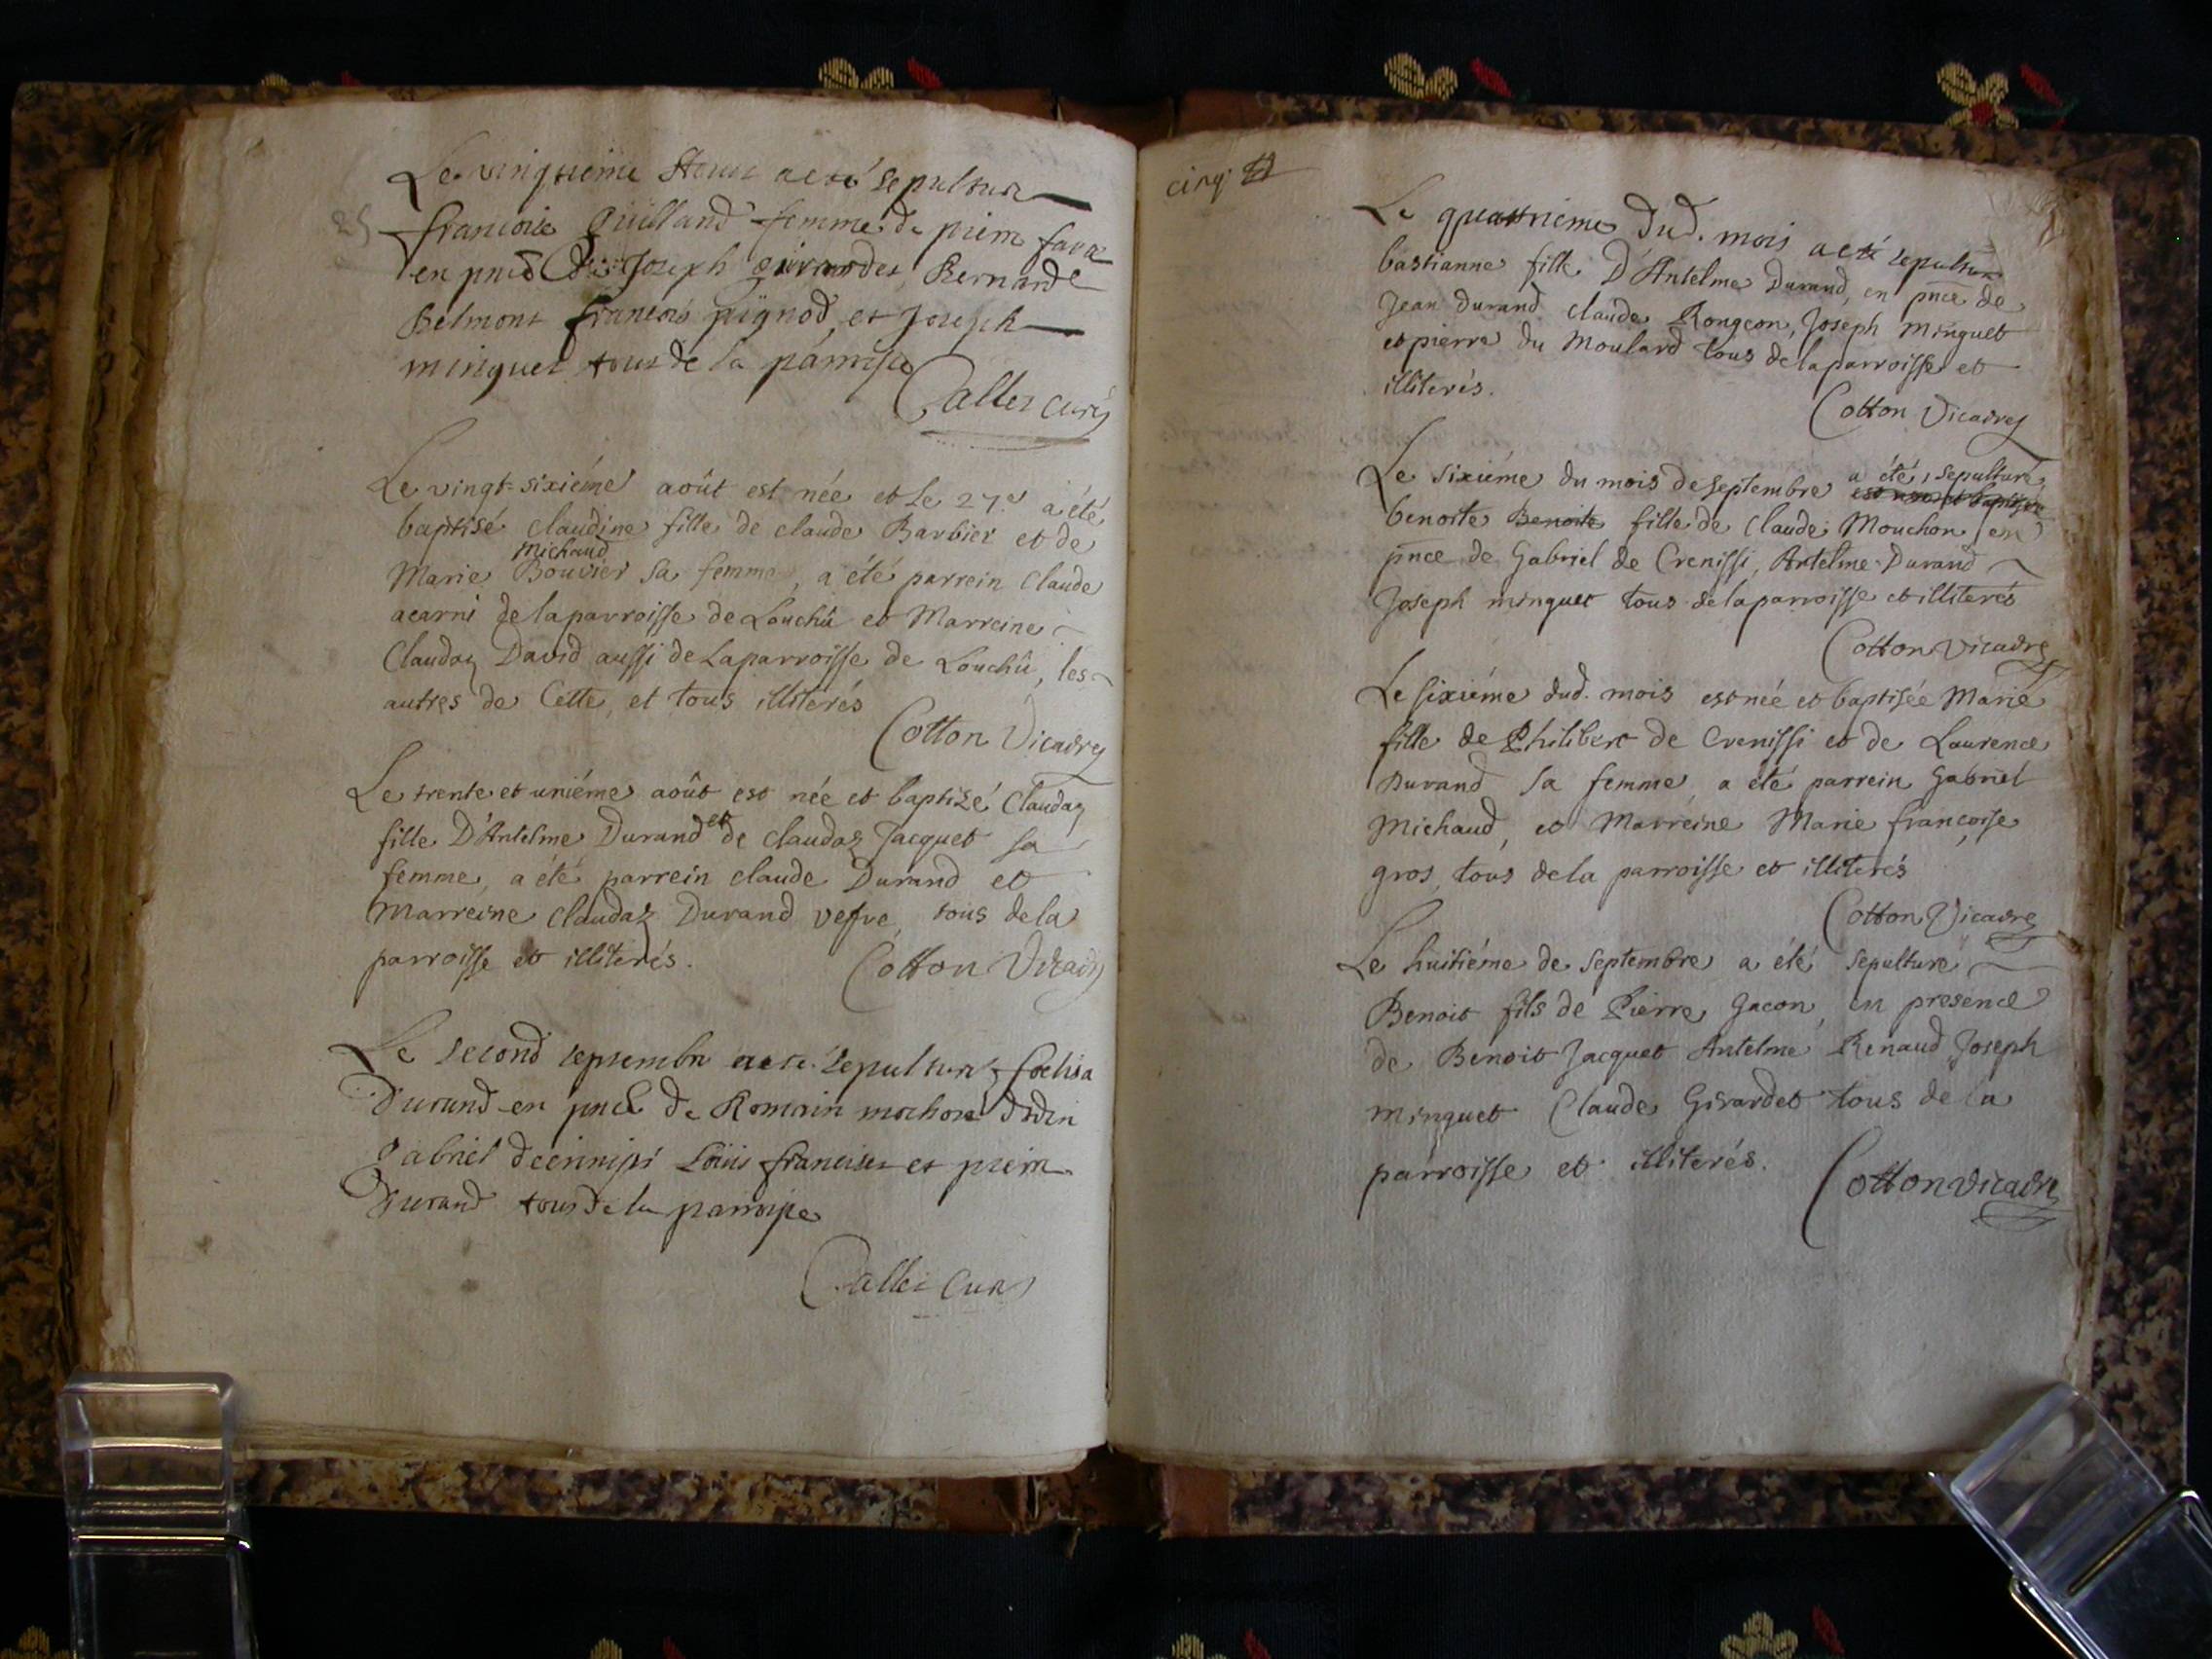 Le vingtieme Aoust a eté sepulturé
25
francoise Guilland femme de pierre favre
en pnce de Joseph girardet, Bernard
Belmont francois pignod, et Joseph
minguet tous de la parroisse
Callet curé
Le vingt-sixiéme août est née et Le 27.e a été
baptisé claudine fille de claude Barbier et de
Michaud
Marie Bouvier sa femme, a été parrein claude
acarni de laparroisse de Louchû et Marreine
Claudaz David aussi de Laparroisse de Louchû, les
autres de Cette, et tous illiterés
Cotton Vicaire
Le trente et uniéme août est née et baptizé Claudaz
fille D'Antelme Durand et de claudaz Jacquet sa
femme, a été parrein claude Durand et
Marreine claudaz Durand vefve, tous dela
parroisse et illiterés.
Cotton Vicaire
Le second septembre a eté sepulturé
Durand en pnce de Romain
gabriel decrenissi Loüis et pierre
Durand tous de la parroisse
Callet curé
cinq
Le quatrieme Dud. mois a eté sepulturé
bastianne fille D'Antelme Durand, en pnce de
Jean Durand, claude Rongeon, Joseph Minguet
et pierre du Moulard tous delaparroisse et
illiterés.
Cotton Vicaire
Le sixiéme du mois de septembre a été sepulturé
est née et baptisée
benoite Benoite fille de Claude Mouchon en
pnce de Gabriel de Crenissi, Antelme Durand
Joseph minguet tous delaparroisse et illiterés
Cotton vicaire
Le sixiéme dud. mois est née et baptisée Marie
fille de Philibert de Crenissi et de Laurence
Durand sa femme, a été parrein Gabriel
Michaud, et Marreine Marie françoise
gros, tous dela parroisse et illiterés
Cotton Vicaire
Le huitiéme de septembre a été sepulturé
Benoit fils de Pierre Gacon, en presence
de Benoit Jacquet Antelme Renaud Joseph
Minguet Claude Girardet tous de la
parroisse et illiterés.
Cotton vicaire